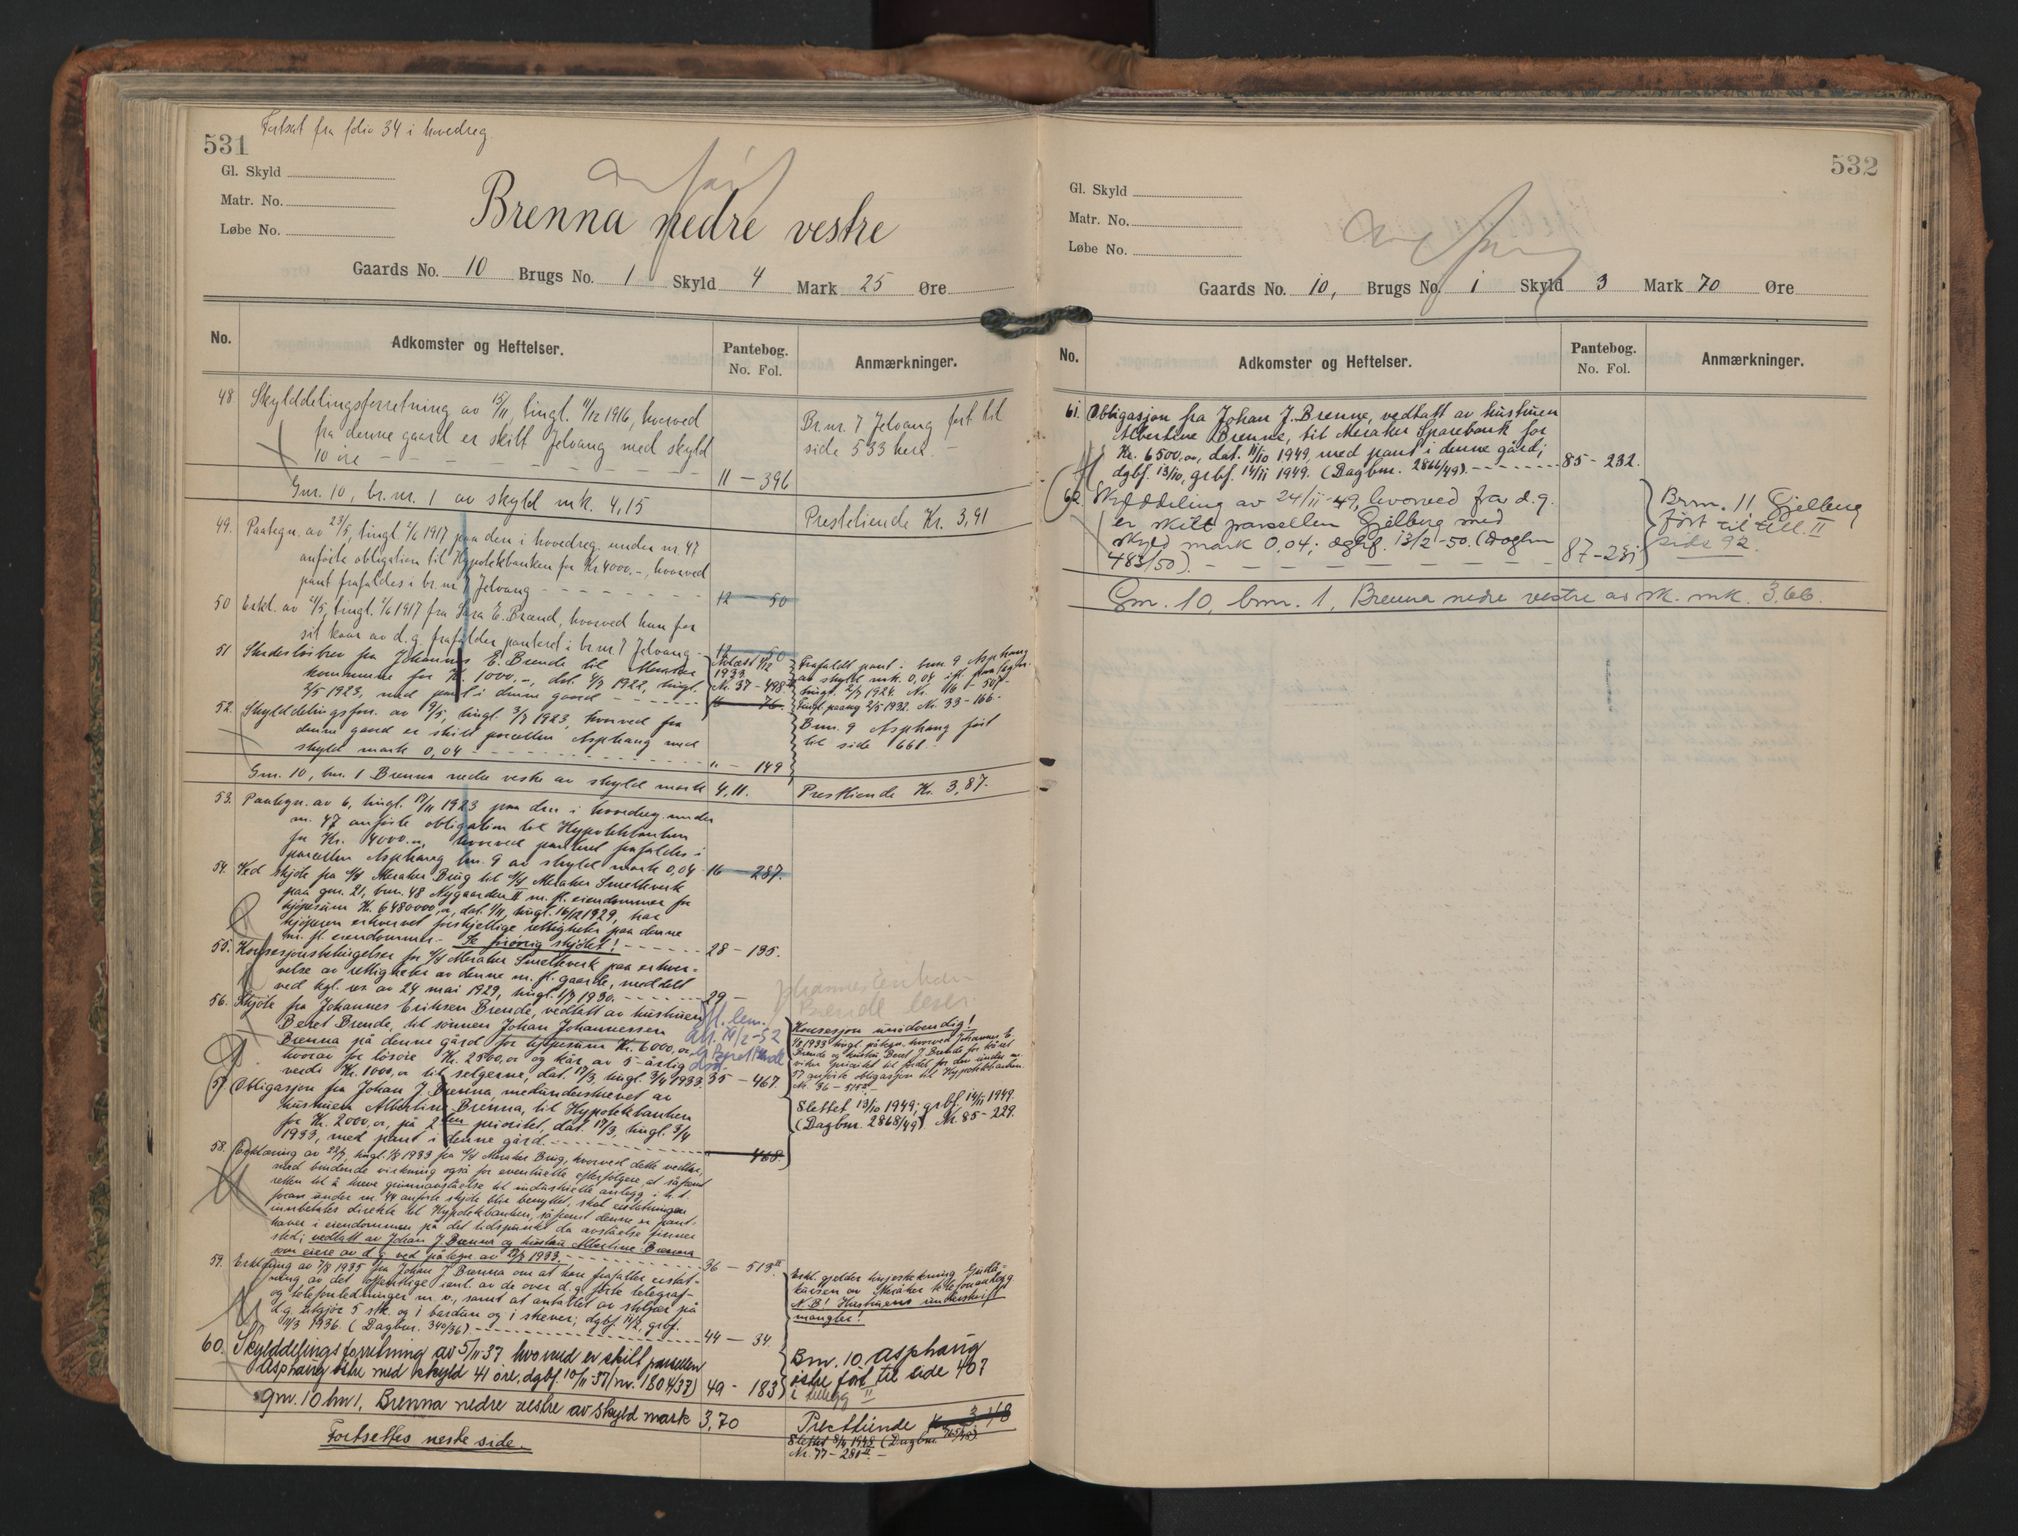 Fortsat fra folio 34 i hovedreg.
531
Gl. Skyld
Matr. No.
Løbe No.
Brenna nedre vestre
Gaards No. 10 Brugs No. 1 Skyld 4 Mark 25 Øre
No. Adkomster og Heftelser. Pantebog. No. Fol. Anmærkninger.
48 Skylddelingsforretning av 15/11, tingl. 11/12 1916, hvorved
fra denne gaard er skilt Jelvang med skyld
10 øre 11 - 396
Br.nr. 7 Jelvang ført til
side 533 her.
Gnr. 10, br.nr. 1 av skyld mk. 4,15
Prestetiende Kr. 3,91
49. Paategn. av 23/5, tingl. 2/6 1917 paa den i hovedreg. under nr. 47
anførte obligation til Hypotekbanken for Kr 4000.-, hvorved
pant frafaldes i br.nr. 7 Jelvang 12 - 50
50 Erkl. av 2/5, tingl. 2/6 1917 fra Sara E. Brænd, hvorved hun for
sit kaar av d.g. frafalder panteret i br.nr 7 Jelvang 12 - 50
51 Skadesløsbrev fra Johannes E. Brende til Meraker
kommune for Kr. 1000,-, dat. 4/7 1922, tingl.
2/5 1923, med pant i denne gaard 16 - 76.
Avlæst 9/12
1933
Nr. 37 - 498
Frafaldt pant i bnr. 9 Asphaug
av skyld mk. 0,04 ifl. paategn.
tingl. 2/7 1924. Nr. 16 - 507
Tingl. paateg 2/5 1932. Nr. 33 - 166.
52. Skylddelingsforr. av 9/5, tingl. 3/7 1923, hvorved fra
denne gaard er skilt parcellen Asphaug med
skyld mark 0,04 " - 149
Bnr. 9 Asphaug ført
til side 661.
Gnr. 10, bnr. 1 Brenna nedre vestre av skyld mark 4,11.
Presttiende Kr. 3,87.
53. Paategn. av 6, tingl. 17/11 1923 paa den i hovedreg. under
nr. 47 anførte obligation til Hypotekbanken
for Kr. 4000.-, hvorved panteret frafaldes i
parcellen Asphaug bnr. 9 av skyld mark 0,04 16 - 287.
54. Ved skjøte fra A/S Meraker Brug til A/S Meraker Smelteverk
paa gnr. 21, bnr. 48 Nygaarden II m. fl. eiendommer for
kjøpesum Kr. 6480000,-, dat. 1/11, tingl. 16/12 1929, har
kjøperen erhvervet forskjellige rettigheter paa denne
m. fl. eiendommer. Se forøvrig skjøtet! 28 - 135.
55. Konsesjonsbetingelser for A/S Meraker Smelteverk paa erhver-
velse av rettigheter av denne m. fl. gaarde, meddelt
ved kgl. res av 24 mai 1929, tingl. 1/7 1930. 29 -
56. Skjøte fra Johannes Eriksen Brende, vedtatt av hustruen
Beret Brende, til sønnen Johan Johannessen
Brenna på denne gård for kjøpesum Kr. 6000,or
hvorav for løsøre Kr. 2500,or og kår av 5-årlig
verdi Kr. 1000,or til selgerne, dat. 17/3, tingl. 3/4 1933. 35 - 467.
Konsesjon unødvendig!
57 Obligasjon fra Johan J. Brenna, medunderskrevet av
hustruen Albertine Brenna, til Hypotekbanken
for Kr. 2000,or, på 2den prioritet, dat. 17/3, tingl. 3/4
1933, med pant i denne gård. " 468.
Slettet 13/10 1949; grbf. 14/11 1949.
(Dagbnr. 2868/49) Nr. 85 - 229.
58. Erklæring av 22/7, tingl. 1/8 1933 fra A/S Meraker Brug, hvorved dette vedtar,
med bindende virkning også for eventuelle efterfølgere, at såfremt
retten til å kreve grunnavståelse til industrielle anlegg i h. t.
foran under nr. 44 anførte skjøte blir benyttet, skal erstatningen
innbetales direkte til Hypotekbanken, såfremt denne er pant-
haver i eiendommen på det tidspunkt da avståelse finner
sted; vedtatt av Johan J Brenna og hustru Albertine Brenna
som eiere av d.g. ved påtegn. av 1933 36 - 513
59. Erklæring av 7/8 1935 fra Johan J Brenna om at han frafaller erstat-
ning av det offentlige i anl. av de over d.g. førte telegraf-
og telefonledninger m. v., samt at antallet av stolper på
d.g. utgjør 5 stk. og i bardun og i stever; dgbf. 14/2, grbf.
11/3 1936. (Dagbnr. 340/36) 44 - 34
N.B! Hustruens underskrift
mangler!
60. Skylddelingsforretning av 5/11 37 hvorved er skilt parsellen
Asphaug østre med skyld 41 øre, dgbf. 10/11-37 (nr. 1804/37) 49 - 183
Bnr. 10 Asphaug
østre ført til side 407
i tillegg II
Gnr. 10 bnr 1, Brenna nedre vestre av skyld mark 3,70
Presttiende Kr. 3,48
Slettet 8/4 1948 (Dagbnr. 765/48)
Nr. 77 - 281
Fortsettes neste side.
532
Gl. Skyld
Matr. No.
Løbe No.
Gaards No. 10, Brugs No. 1 Skyld 3 Mark 70 Øre
No. Adkomster og Heftelser. Pantebog. No. Fol. Anmærkninger.
61. Obligasjon fra Johan J. Brenne, vedtatt av hustruen
Albertine Brenne, til Meraker Sparebank for
Kr. 6500,or, dat. 11/10 1949, med pant i denne gård;
dgbf. 13/10, grbf. 14/11 1949. (Dagbnr. 2866/49). 85 - 232.
62. Skylddeling av 24/11-49, hvorved fra d.g.
er skilt parsellen Gjelberg med
skyld mark 0,04; dgbf. 13/2-50. (Dagbnr
483/50) 87 - 231
Brnr. 11 Gjelberg
ført til till. II
side 92.
Gnr. 10, bnr. 1, Brenna nedre vestre av sk. mk. 3,66.